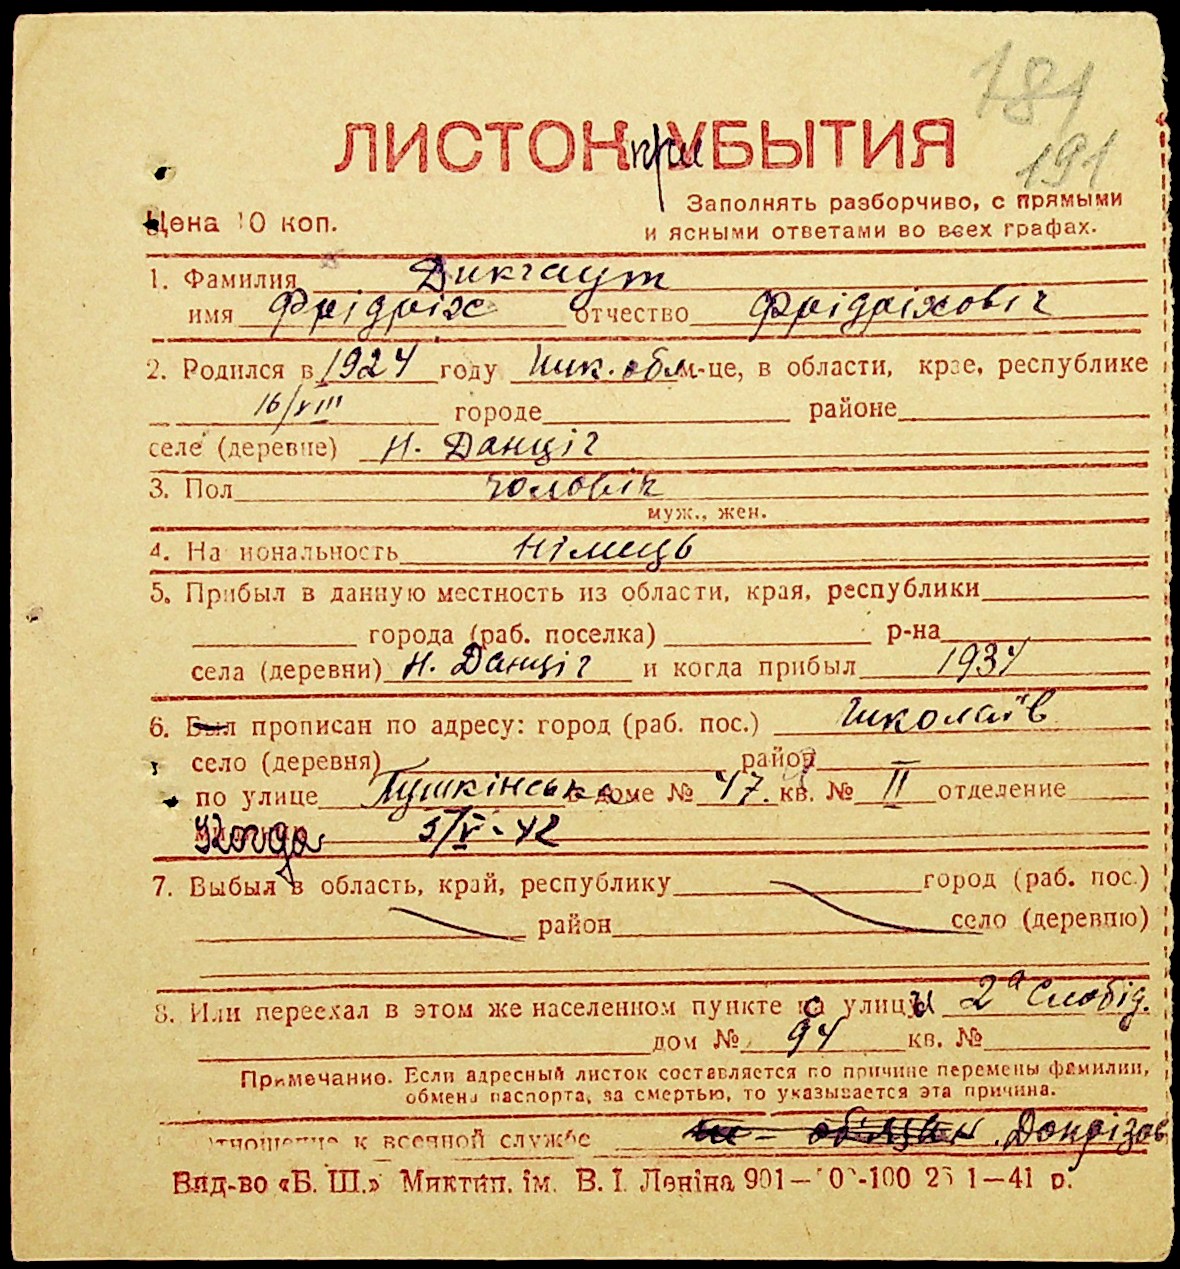 181
191
ЛИСТОК при УБЫТИЯ
Заполнять разборчиво, с прямыми
Цена 10 коп.
и ясными ответами во всех графах.
1. Фамилия Дикгаут
имя Фрідріх отчество Фрідріховіч
2. Родился в 1924 году Ник. обл м-це, в области, крае, республике
16/VIII городе районе
селе (деревне) Н. Данціг
3. Пол чоловік
муж., жен.
4. Национальность німець
5. Прибыл в данную местность из области, края, республики
города (раб. поселка) р-на
села (деревни) Н. Данціг и когда прибыл 1937
6. Был прописан по адресу: город (раб. пос.) Николаїв
село (деревня) район
по улице Пушкінська в доме № 47. кв. № II отделение
Когда 5/V-42
7. Выбыл в область, край, республику город (раб. пос.)
район село (деревню)
8. Или переехал в этом же населенном пункте с улицы 2а Слобід.
дом № 94 кв. №
Примечание. Если адресный листок составляется по причине перемены фамилии,
обмена паспорта, за смертью, то указывается эта причина.
отношение к военной службе
Вид-во «Б. Ш.» Миктип. ім. В. І. Леніна 901— 0 -100 2 1—41 р.